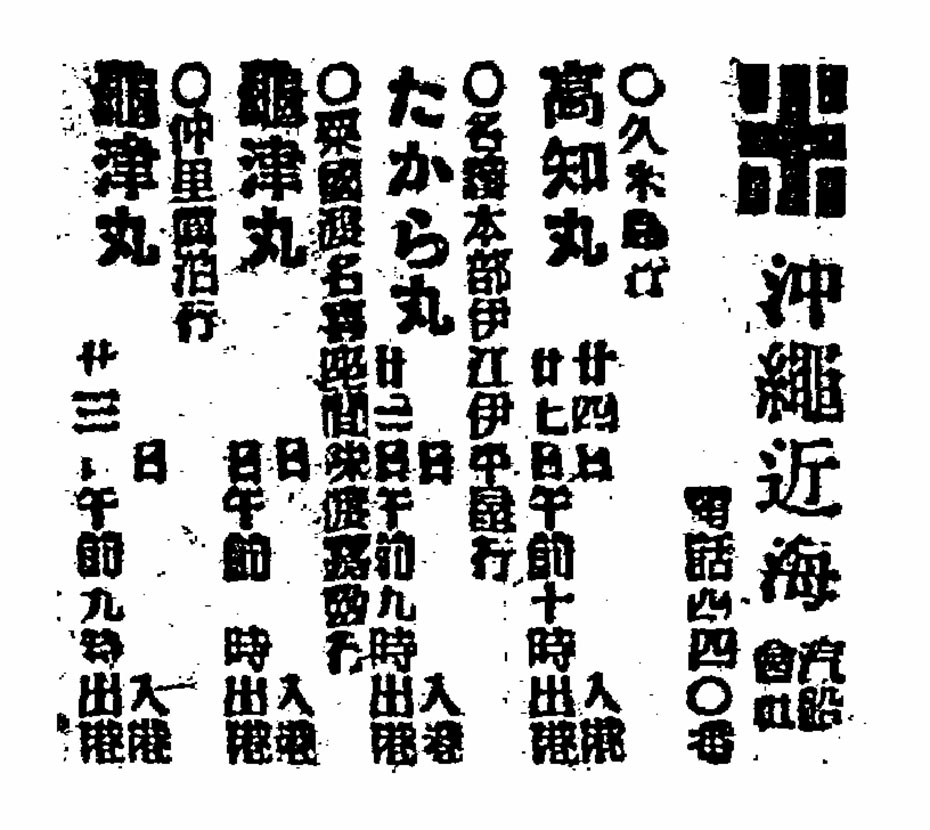 沖繩近海
汽船
會社
電話四四〇番
〇久米島行
高知丸
廿四日入港
廿七日午前十時出港
〇名護本部伊江伊平屋行
たから丸
日入港
廿二日午前九時出港
〇粟國渡名喜座間味渡嘉敷行
龜津丸
日入港
日午前 時出港
〇仲里具泊行
龜津丸
日入港
廿三 午前九時出港